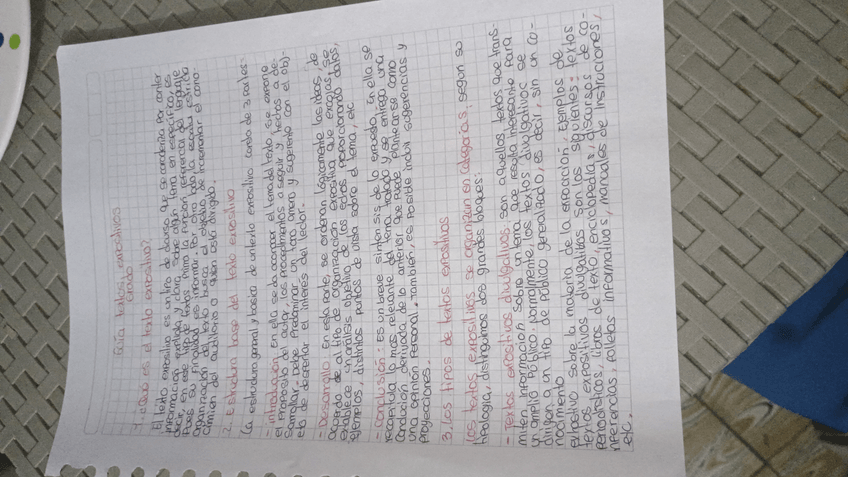 Guia textos expositivos
Grado
1. ¿Que es el texto expositivo?
El texto expositivo es un tipo de discurso que se caracteriza por contar
información, puntual y clara, sobre algún tema en especifico, es
decir en este tipo de textos prima la función referencial del lenguaje
Pues su finalidad es informar. Por otro lado la escritura
organización del texto busca el objetivo de incrementar el cono-
cimien del auditorio a quien está dirigido.
2. Estructura base del texto expositivo
La estructura general y basica de un texto expositivo consta de 3 partes
- introduccion: En ella se da aconocer el tema del texto, se expone
el proposito del autor, los procedimientos a seguir y hechos a de-
sarrollar, debe predominar un tono ameno y sugerente con el obj-
eto de despertar el interes del lector.
- Desarrollo: En esta parte, se ordenan lógicamente las ideas, de
acuerdo al tipo de organización expositiva que escojas, se
establece un análisis objetivo de los echos proporcionando datos,
ejemplos, distintos puntos de vista sobre el tema, etc
- Conclusión: Es un breve sintensis de lo expuesto, En ella se
recapitula lo mas relevante del tema tratado y se entrega una
conclucion derivada de lo anterior que puede plantearse como
una opinión personal. también, es posible incluir sugerencias y
proyecciones.
3. los tipos de textos expositivos
los textos expositivos se organizan en categorias, segun su
tipologia, distinguimos dos grandes bloques:
- Textos expositivos divulgativos: son aquellos textos que trans-
miten informacion sobre un tema que resulta interesante para
un amplio público. Normalmente, los textos divulgativos se
dirigen a un tipo de público generalizado, es decir, sin un co-
nocimiento
exhaustivo sobre la materia de la exposición. Ejemplos de
textos expositivos divulgativos son los siguientes: textos
periodisticos, libros de texto, enciclopedias, discursos de co-
nferencias, folletos informativos, manuales de instrucciones,
etc.